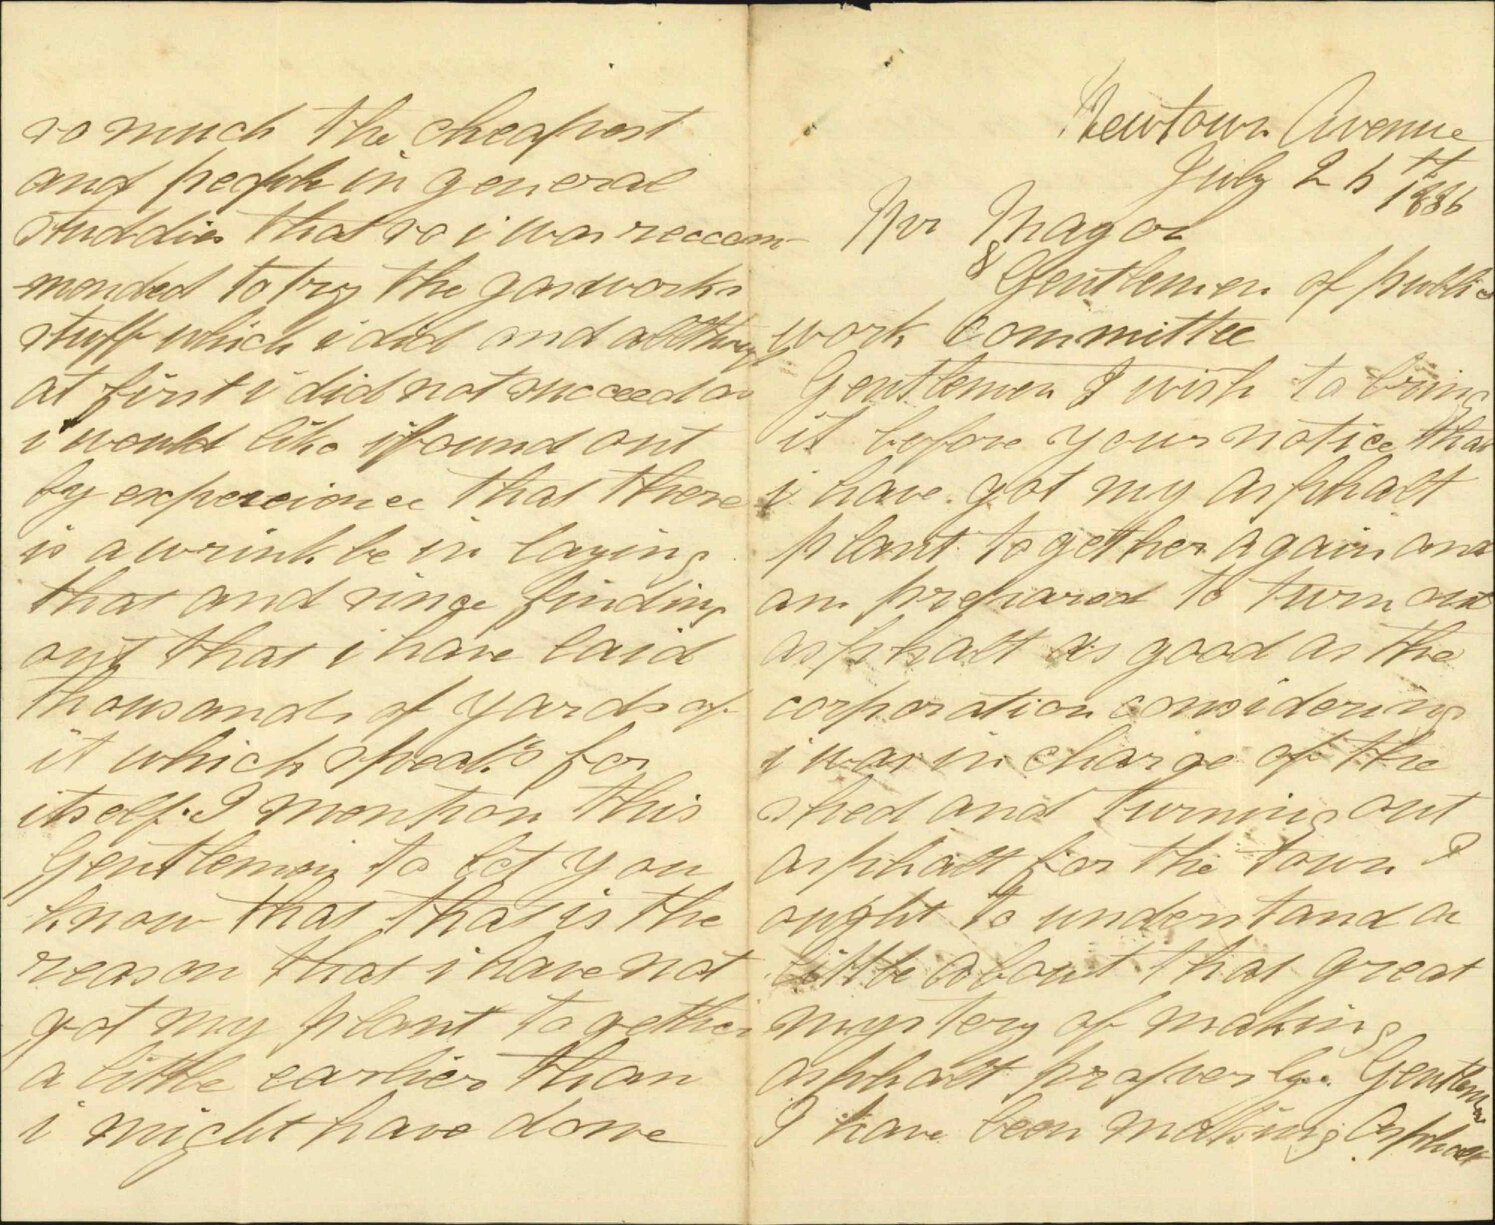 so much the cheapest
and people in general
studdies that so i was reccom-
mended to try the gasworks
stuff which i did and allthoug
at first i did not succeed as
i would like i found out
by expereience that there
is a wrinkle in laying
that and since finding
out that i have laid
thousands of yards of
it which speaks for
itself. I mention this
Gentlemen to let you
know that that is the
reason that i have not
got my plant together
a little earlier than
i might have done
Newtown Avenue
July 26th 1886
Mr Mayor
& Gentlemen of public
work committee
Gentlemen I wish to bring
it before your notice that
i have got my asphalt
plant together again and
am prepared to turn out
asphalt as good as the
corporation considering
i was in charge of the
shed and turning out
asphalt for the town I
ought to understand a
little about that great
mystery of making
asphalt properly. Gentlemen
I have been making Asphalt